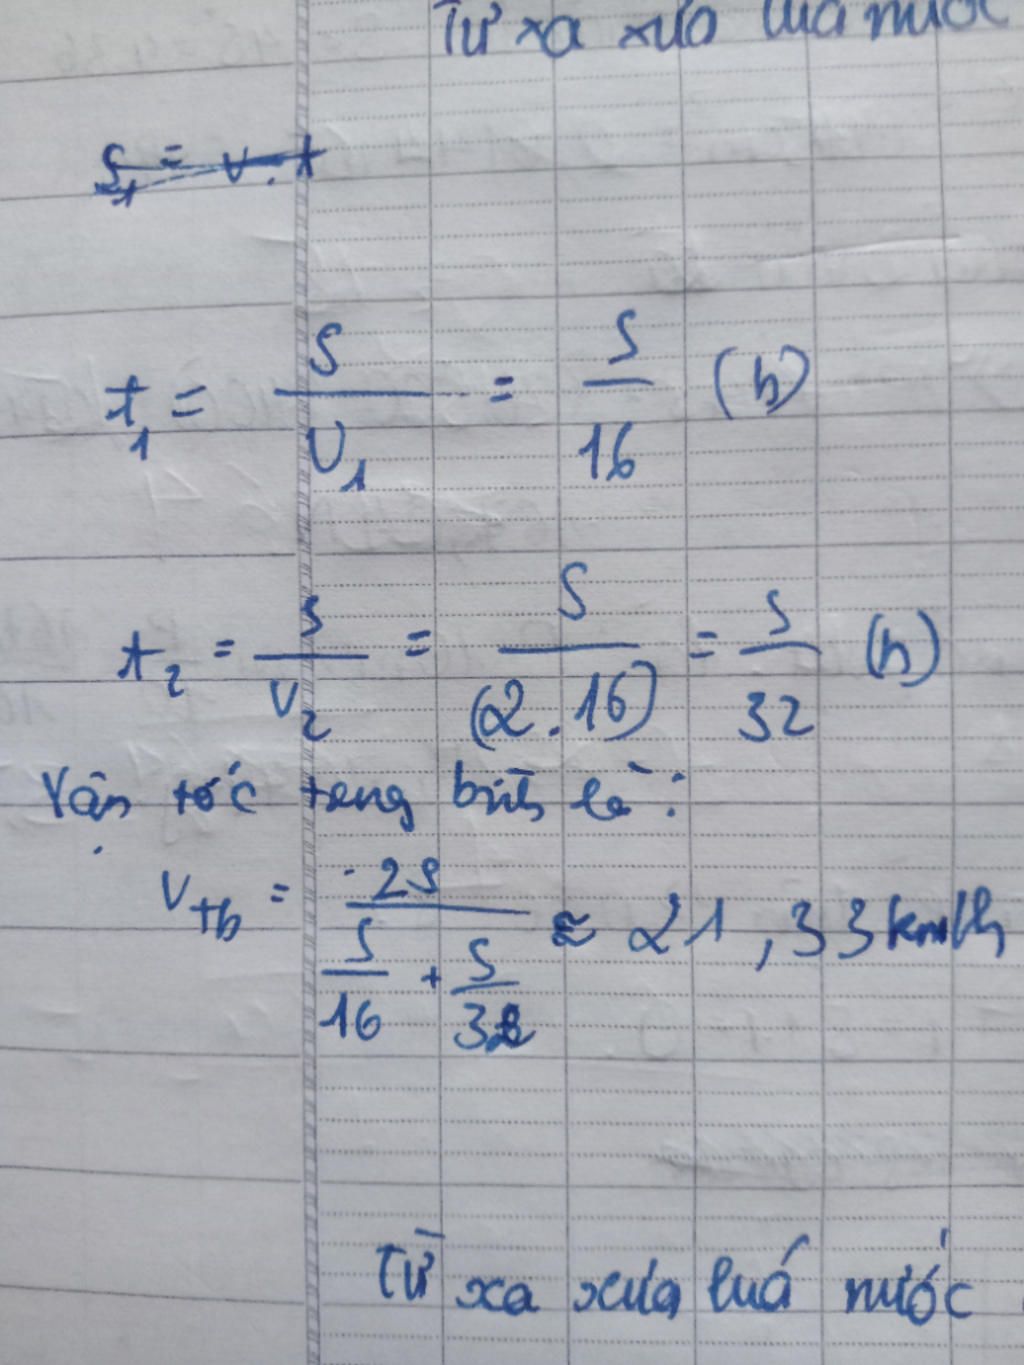 Từ xa xưa lúa nước
S₁ = v . t
t₁ = S / V₁ = S / 16 (h)
t₂ = S / V₂ = S / (2 . 16) = S / 32 (h)
Vận tốc trung bình là :
V_tb = 2S / (S/16 + S/32) ≈ 21,33 km/h
Từ xa xưa luá nước